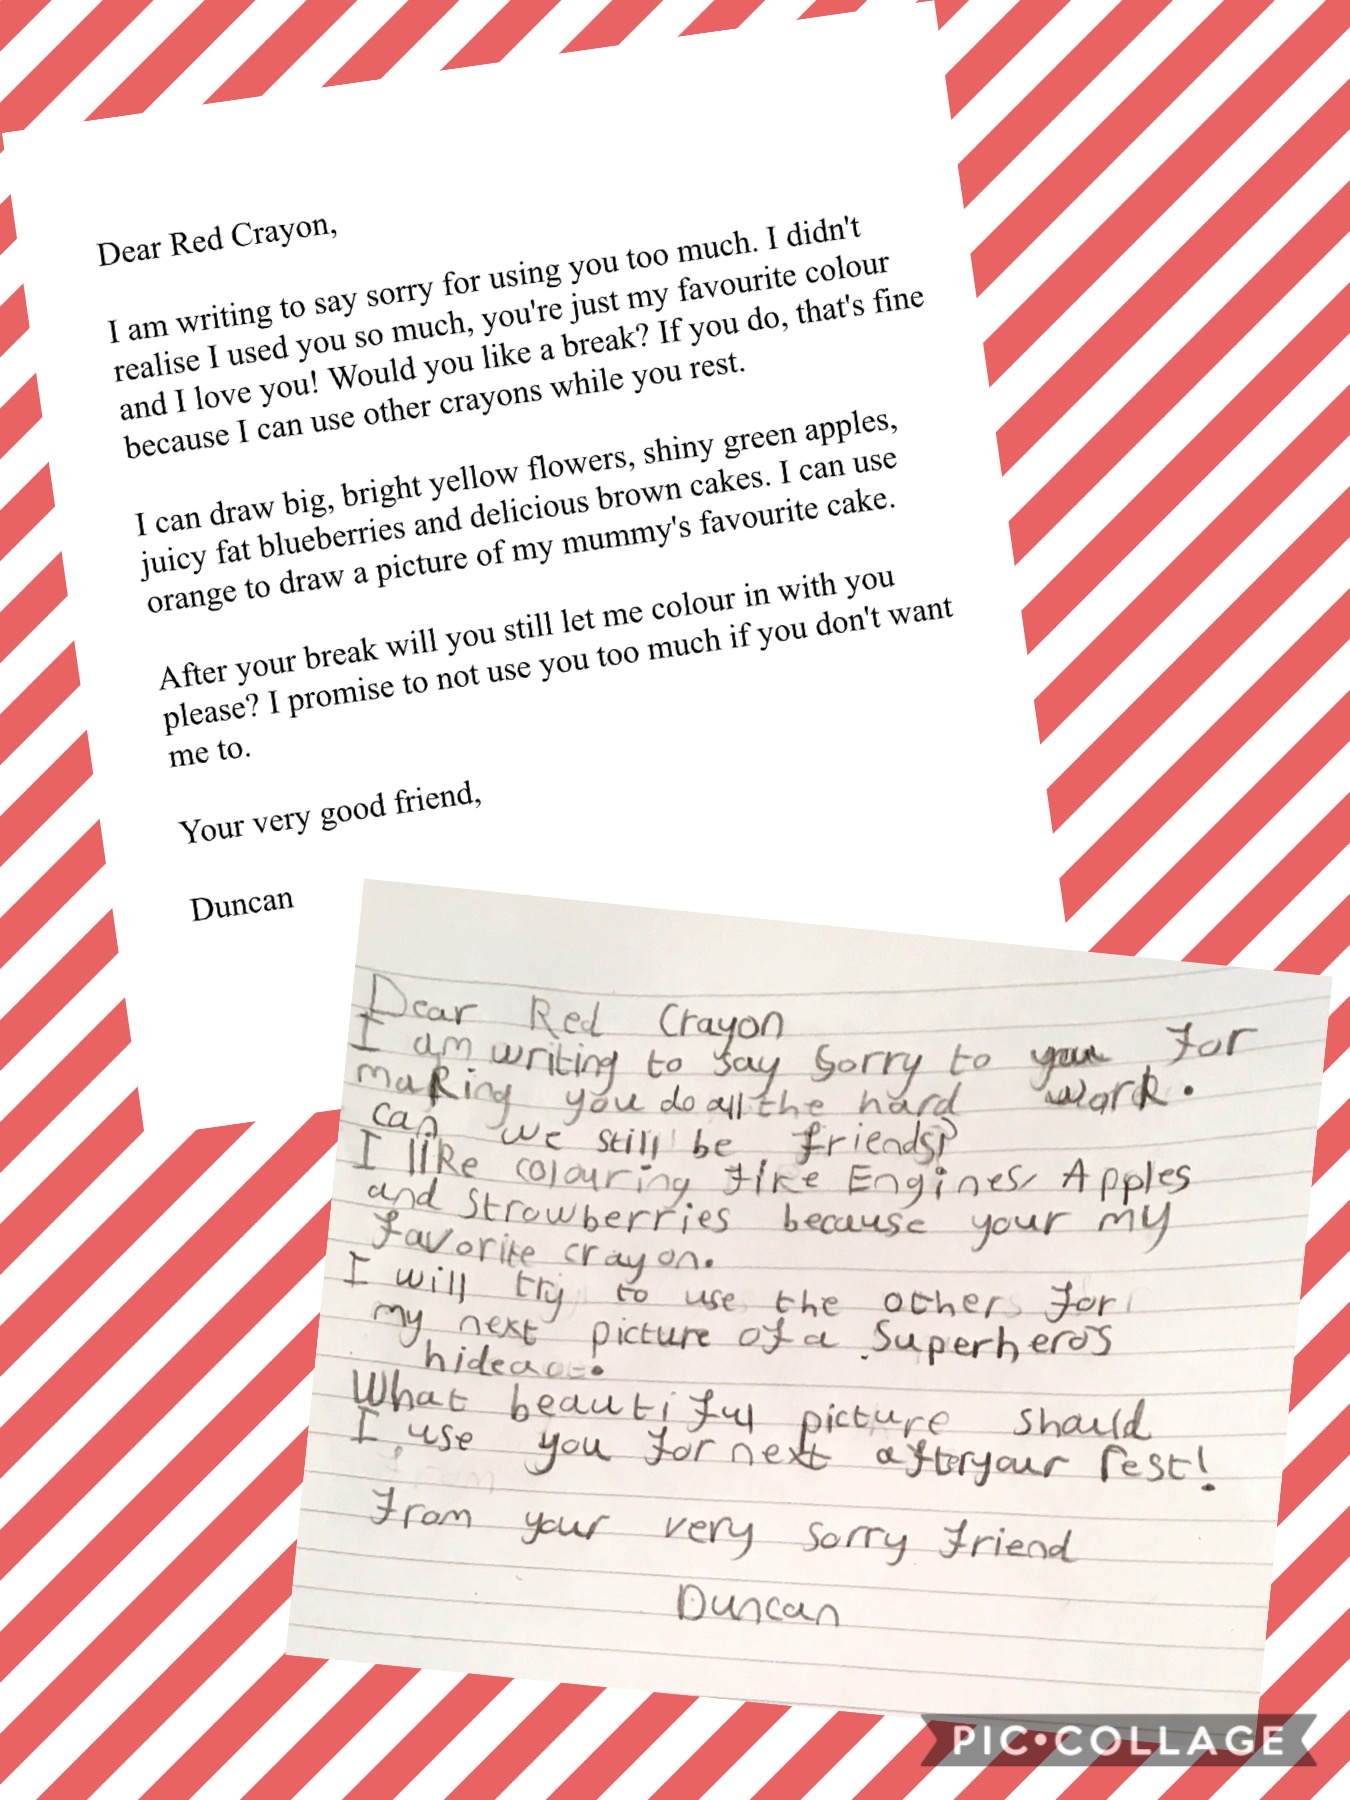 Dear Red Crayon,
I am writing to say sorry for using you too much. I didn't
realise I used you so much, you're just my favourite colour
and I love you! Would you like a break? If you do, that's fine
because I can use other crayons while you rest.
I can draw big, bright yellow flowers, shiny green apples,
juicy fat blueberries and delicious brown cakes. I can use
orange to draw a picture of my mummy's favourite cake.
After your break will you still let me colour in with you
please? I promise to not use you too much if you don't want
me to.
Your very good friend,
Duncan
Dear Red Crayon
I am writing to say sorry to you for
making you do all the hard work.
can we still be friends?
I like colouring fire Engines, Apples
and strowberries because your my
favorite crayon.
I will try to use the others for
my next picture of a Superhero's
What beautiful picture should
I use you for next after your rest!
From your very sorry friend
Duncan
PIC•COLLAGE